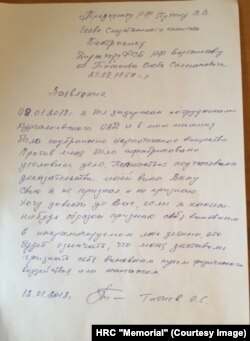 Президенту РФ Путину В.В
Главе Следственного комитета
Бастрыкину
Директору ФСБ РФ Бортникову
от Титиева Оюба Салмановича
24.08.1957 г.
Заявление
09.01.2018. я был задержан сотрудниками
Курчалоевского ОВД и в мою машину
было подброшено наркотическое вещество
Против меня было сфабриковано
уголовное дело,
доказательства моей вины Вину
Свою я не признал и не признаю.
Хочу довести до Вас, если я каким-
нибудь образом признаю себя виновным
в инкриминируемом мне деянии это
будет означать, что меня заставили
признать себя виновным путем физического
воздействия или шантажом.
12.01.2018. Титиев О.С.
HRC "Memorial" (Courtesy Image)